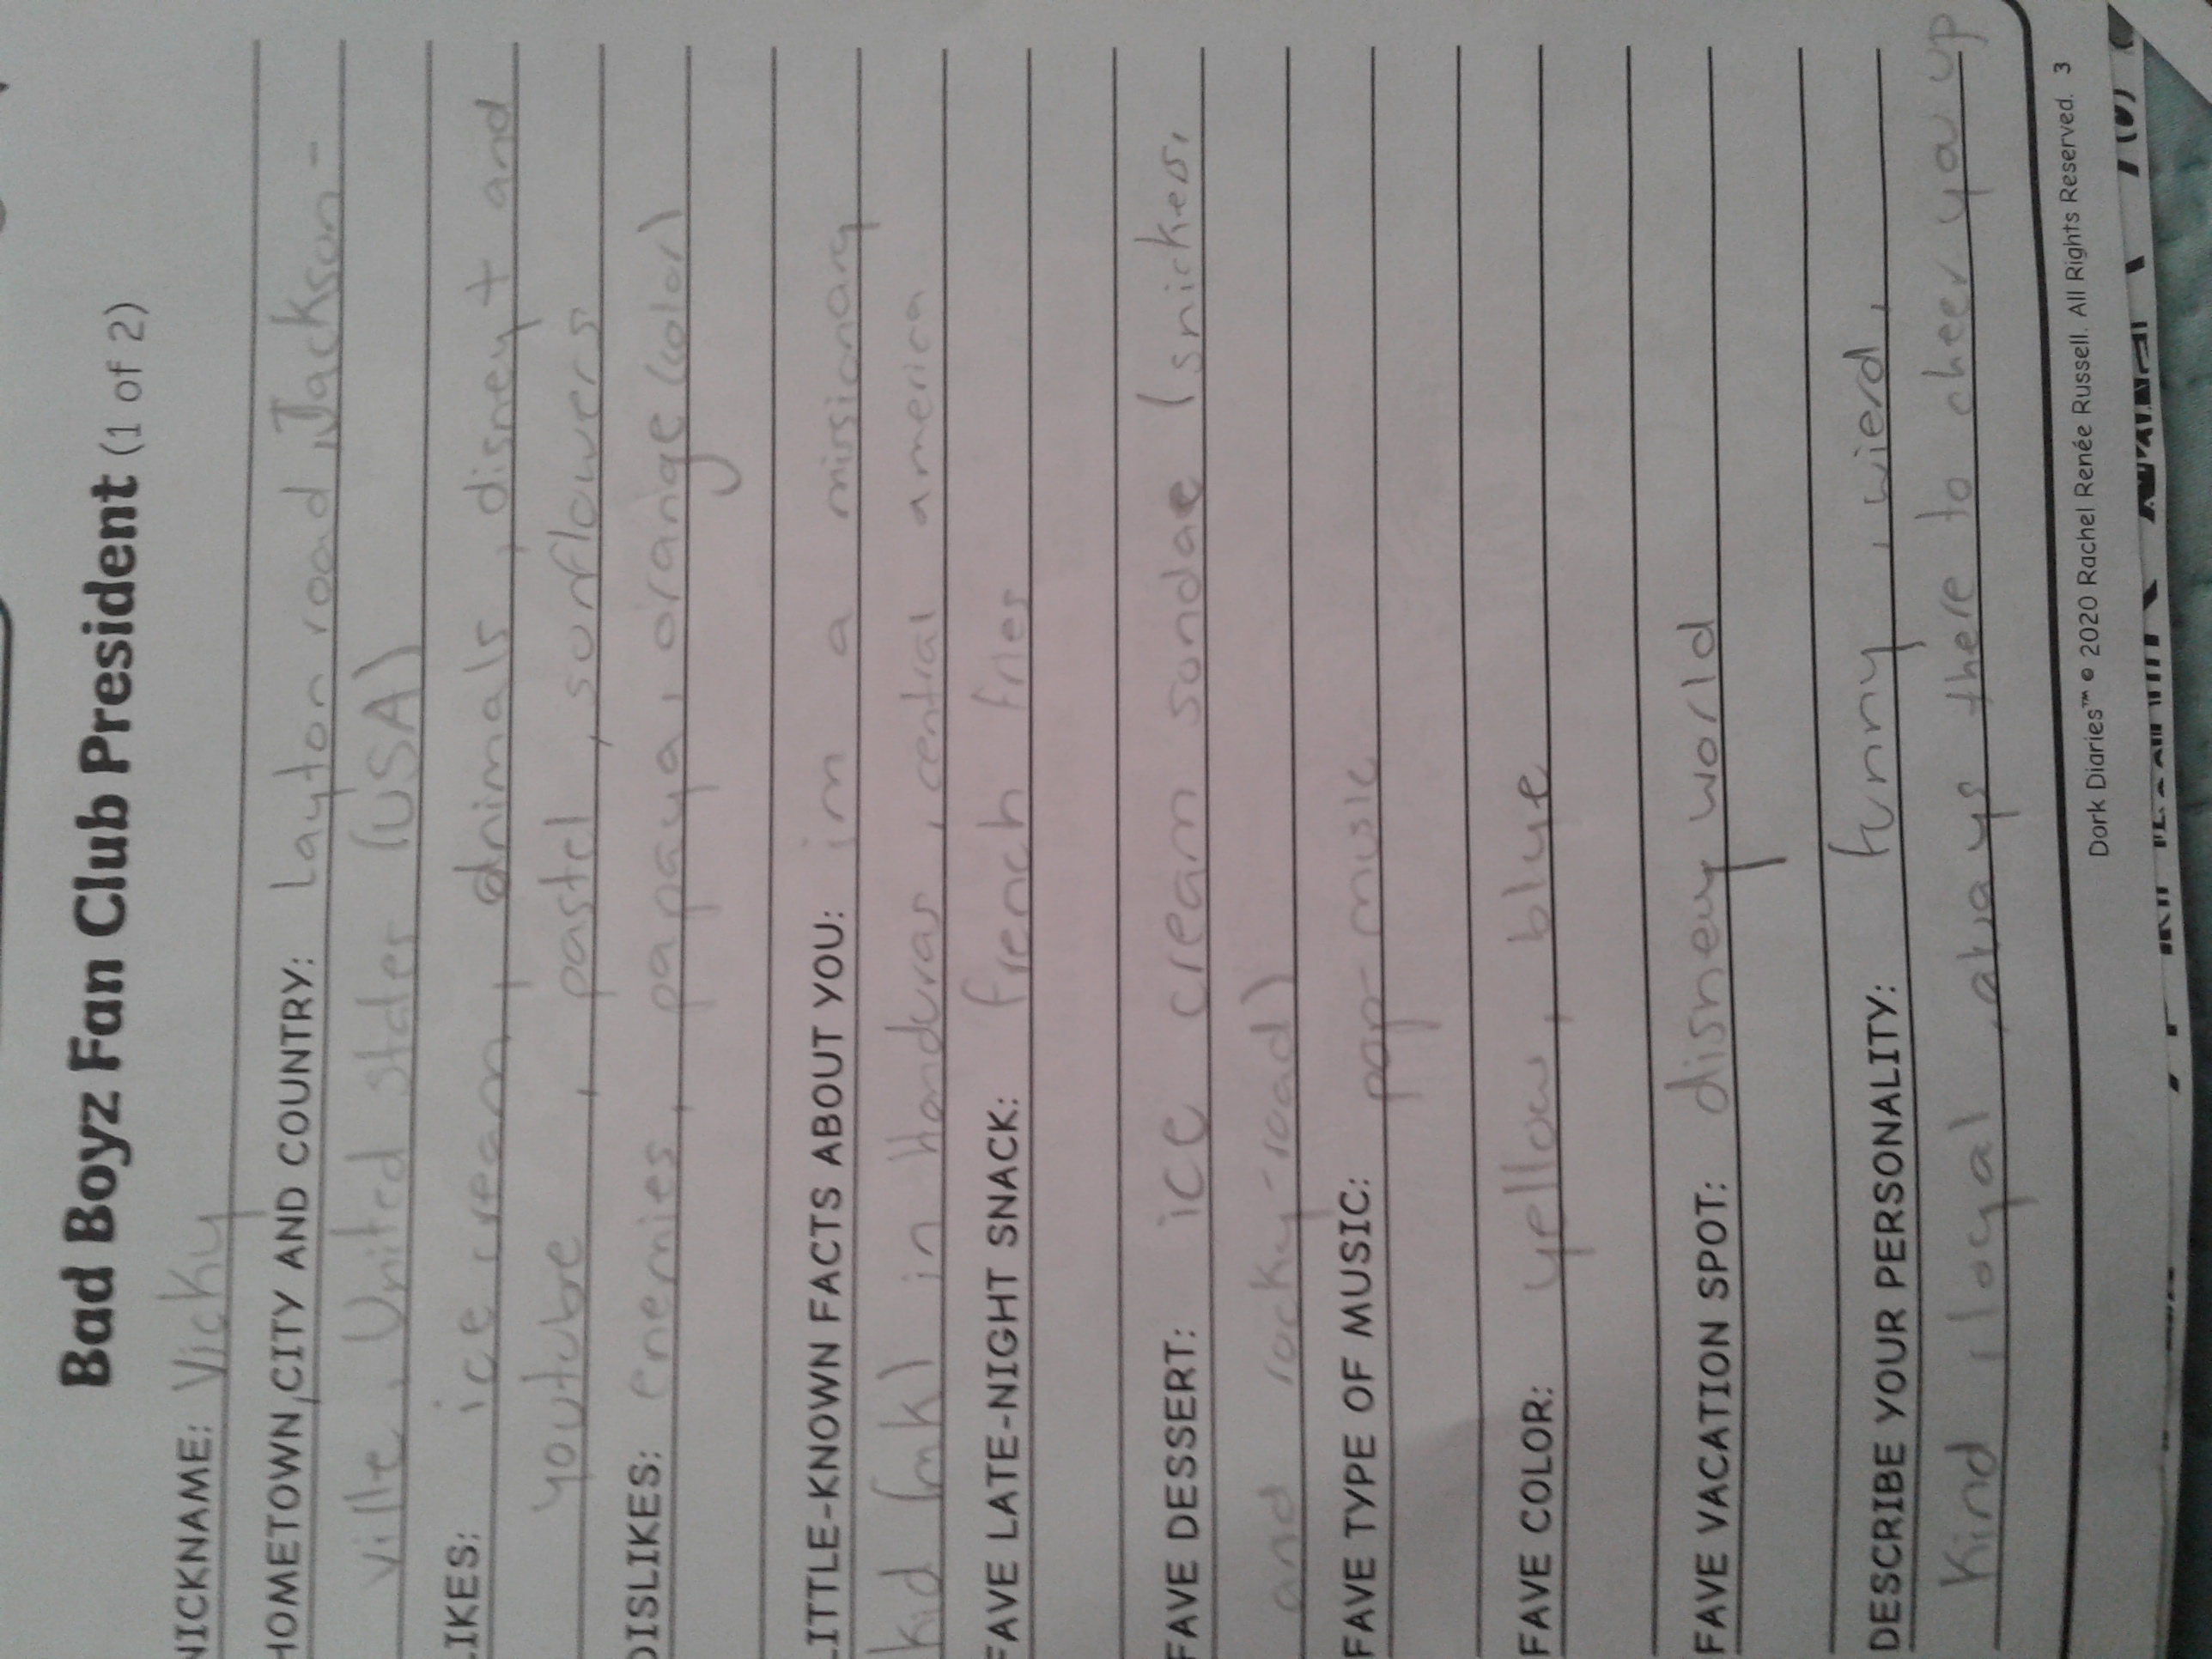 Bad Boyz Fan Club President (1 of 2)
NICKNAME: Vicky
HOMETOWN, CITY AND COUNTRY: Layton road, Jackson-
ville, United states (USA)
LIKES: ice cream, animals, disney + and
youtube, pastel, sunflowers
DISLIKES: enemies, papaya, orange (color)
LITTLE-KNOWN FACTS ABOUT YOU: im a missionary
kid (mk) in honduras, central america
FAVE LATE-NIGHT SNACK: french fries
FAVE DESSERT: ice cream sundae (snickers,
and rocky-road)
FAVE TYPE OF MUSIC: pop-music
FAVE COLOR: yellow, blue
FAVE VACATION SPOT: disney world
DESCRIBE YOUR PERSONALITY: funny, wierd,
kind, loyal, always there to cheer you up
Dork Diaries™ © 2020 Rachel Renée Russell. All Rights Reserved. 3